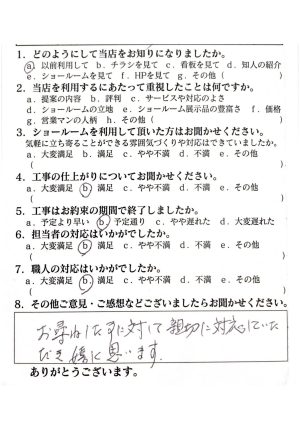 1. どのようにして当店をお知りになりましたか。
a. 以前利用して b. チラシを見て c. 看板を見て d. 知人の紹介
e. ショールームを見て f. HPを見て g. その他 ( )
2. 当店を利用するにあたって重視したことは何ですか。
a. 提案の内容 b. 評判 c. サービスや対応のよさ
d. ショールームの立地 e. ショールーム展示品の豊富さ f. 価格
g. 営業マンの人柄 h. その他 ( )
3. ショールームを利用して頂いた方はお聞かせください。
気軽に立ち寄ることができる雰囲気づくりや対応はできていましたか。
a. 大変満足 b. 満足 c. やや不満 d. 不満 e. その他
( )
4. 工事の仕上がりについてお聞かせください。
a. 大変満足 b. 満足 c. やや不満 d. 不満 e. その他
( )
5. 工事はお約束の期間で終了しましたか。
a. 予定より早い b. 予定通り c. やや遅れた d. 大変遅れた
6. 担当者の対応はいかがでしたか。
a. 大変満足 b. 満足 c. やや不満 d. 不満 e. その他
( )
7. 職人の対応はいかがでしたか。
a. 大変満足 b. 満足 c. やや不満 d. 不満 e. その他
( )
8. その他ご意見・ご感想などございましたらお聞かせください。
お尋ねした事に対して親切に対応していた
だき嬉に思います.
ありがとうございます。